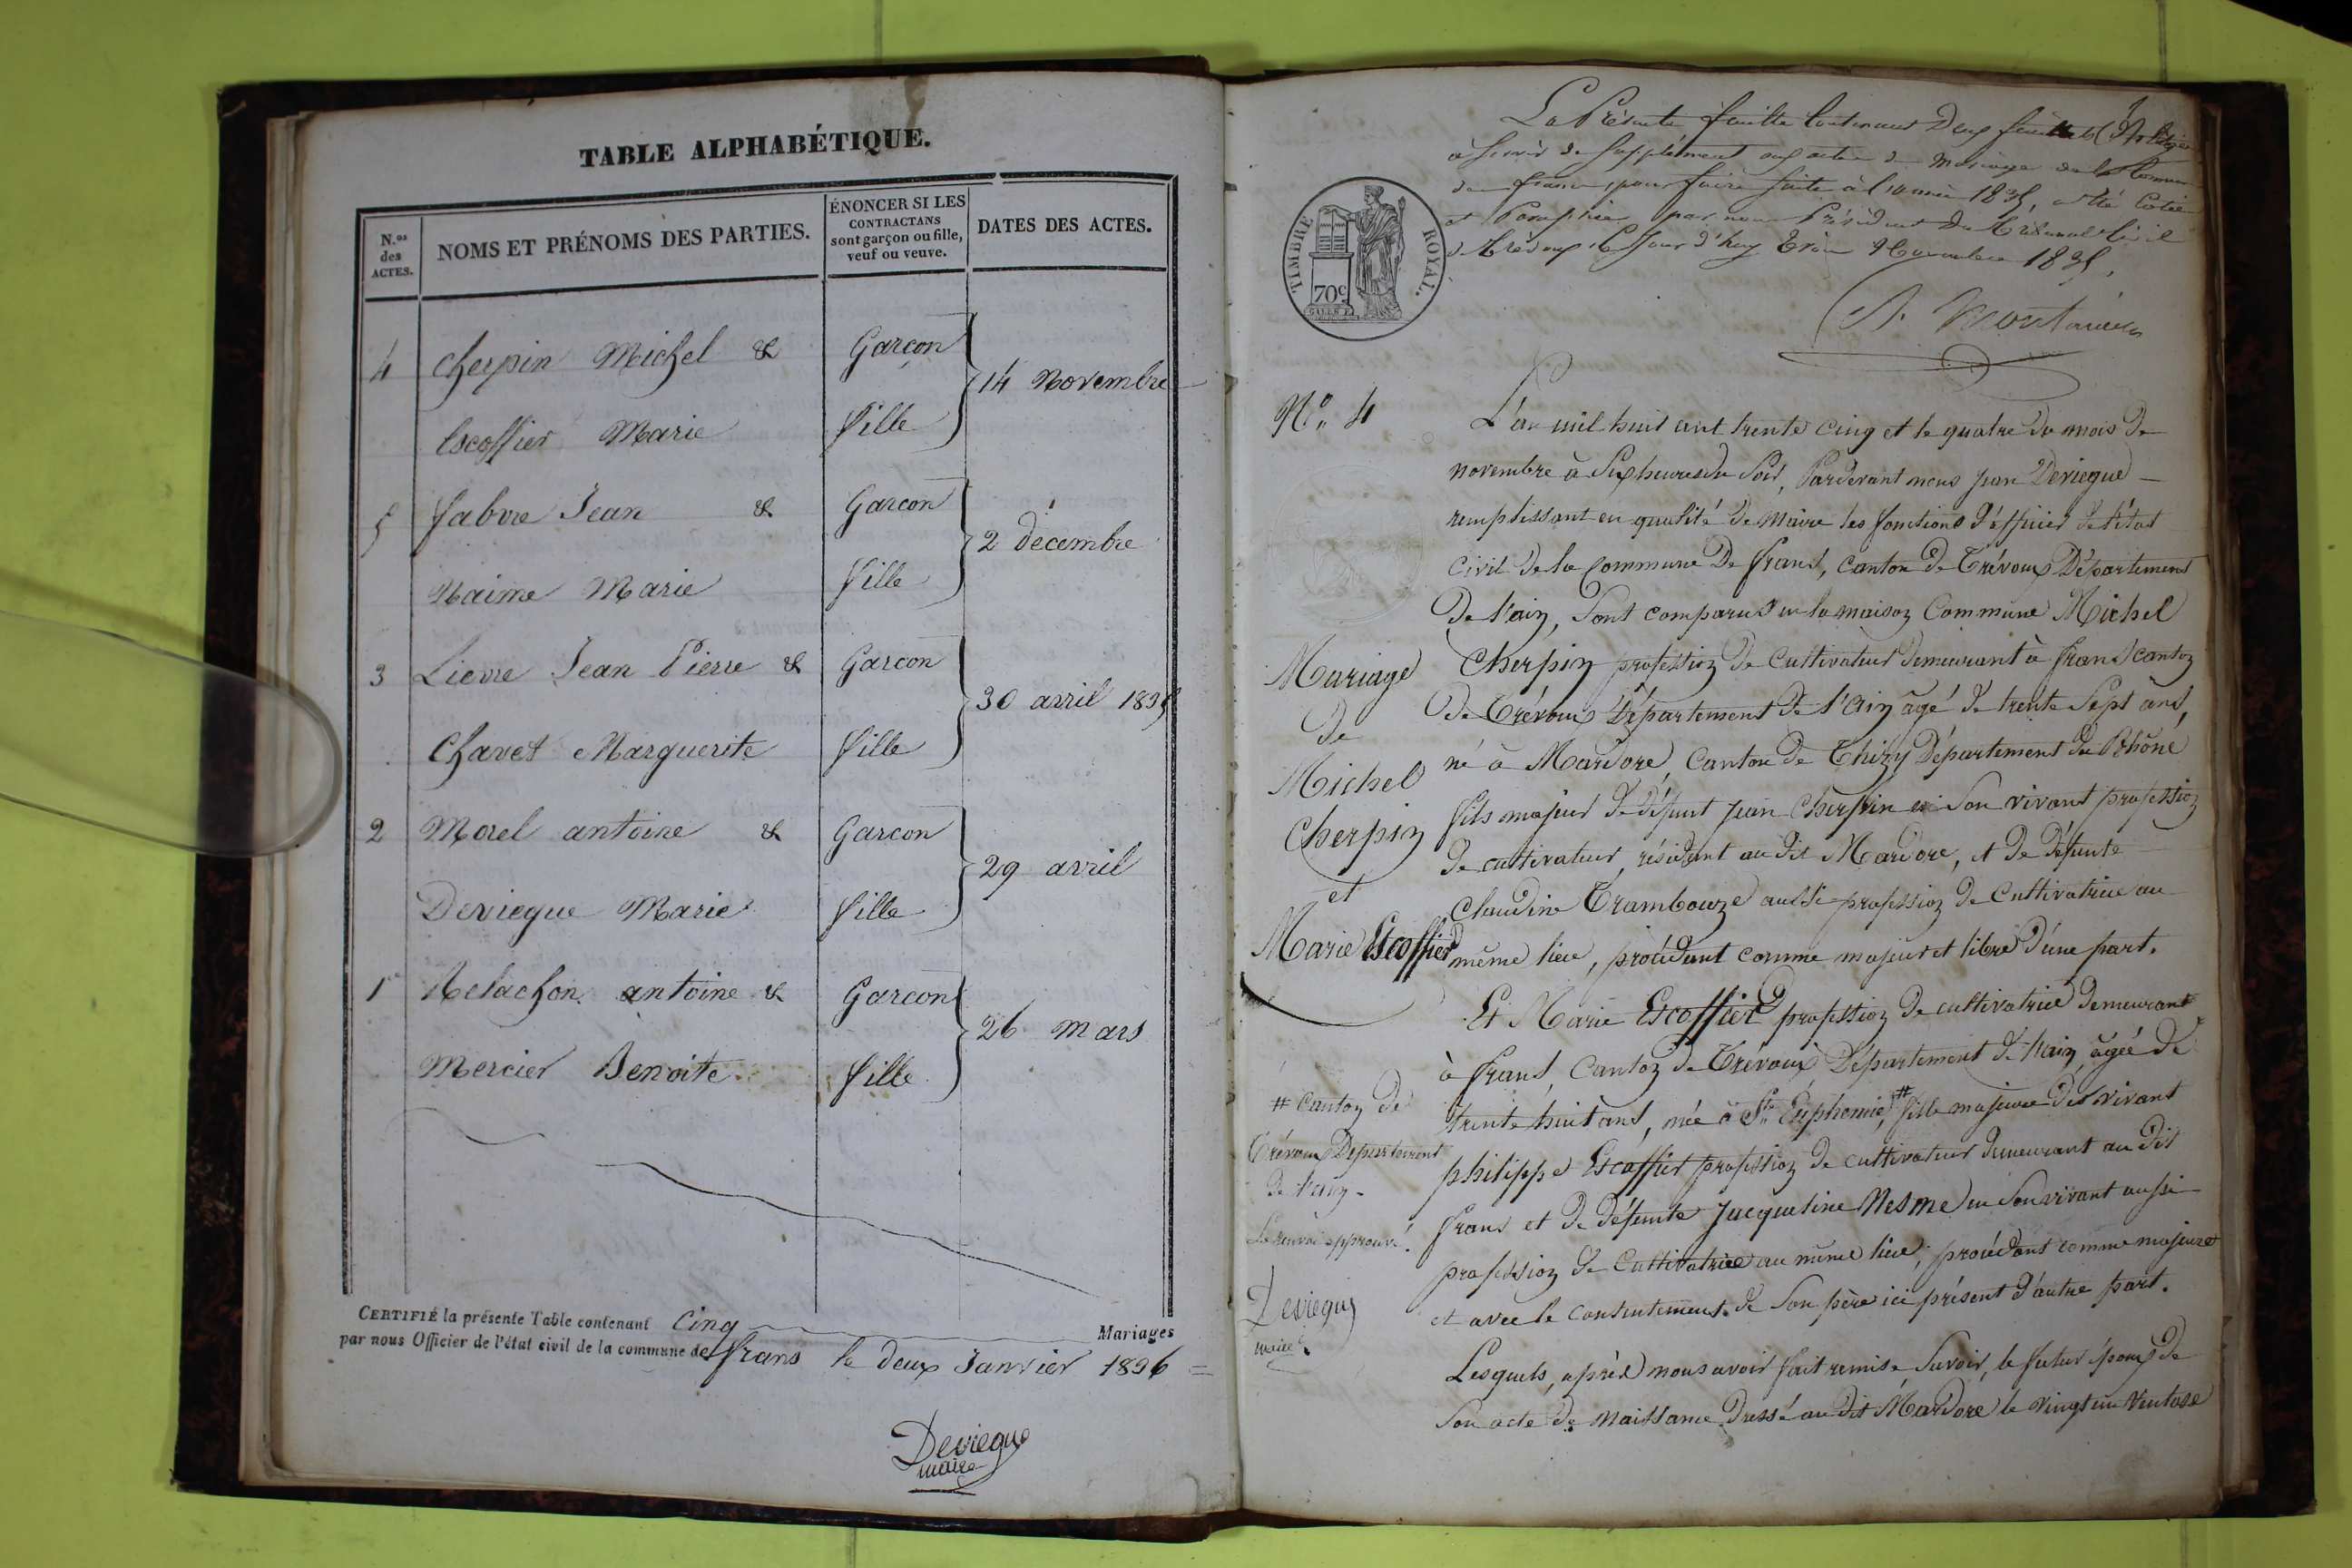 TABLE ALPHABÉTIQUE.
N.os des ACTES.
NOMS ET PRÉNOMS DES PARTIES.
ÉNONCER SI LES
CONTRACTANS
sont garçon ou fille,
veuf ou veuve.
DATES DES ACTES.
4 Cherpin Michel & Garçon
14 Novembre
Escoffier Marie fille
5 fabvre Jean & Garcon
2 décembre
Naime Marie fille
3 Lievre Jean Pierre & Garcon
30 avril 1835
Chavet Marguerite fille
2 Morel antoine & Garcon
29 avril
Deviegue Marie fille
1 Melachon antoine & Garcon
26 mars
Mercier Benoite fille
CERTIFIÉ la présente Table contenant cinq Mariages
par nous Officier de l'état civil de la commune de frans le deux Janvier 1836
Deviegue
maire
La Présente feuille Contenant Deux feuillets
à Servir de Supplément aux actes de Mariage de la Commune
de frans, pour faire suite à l'année 1835, a été Cotée
et Paraphée par nous Président du Tribunal Civil
de Trévoux Ce Jour d'huy Novembre 1835.
TIMBRE ROYAL.
70c
N.o 4
L'an mil huit cent trente cinq et le quatre du mois de
novembre à Six heures du Soir, Pardevant nous jean Deviegue
remplissant en qualité de Maire les fonctions d'officier de l'état
Civil de la Commune De frans, Canton de Trévoux Département
De l'ain, Sont comparus en la maison Commune Michel
Cherpin profession de Cultivateur demeurant à frans canton
de Trévoux Département de l'Ain âgé de trente Sept ans,
né à Mardore, Canton de Thizy Département du Rhône
fils majeur de défunt jean Cherpin en Son vivant profession
de cultivateur, résidant au dit Mardore, et de défunte
Claudine Trambouze aussi profession de Cultivatrice au
même lieu, procédant comme majeur et libre d'une part.
Mariage
de
Michel
Cherpin
et
Marie Escoffier
Et Marie Escoffier profession de cultivatrice demeurant
à frans, Canton de Trévoux Département de l'ain, âgée de
trente huit ans, née à Ste Euphemie, # fille majeure des vivant
philippe Escoffier profession de cultivateur demeurant au dit
frans et de défunte Jacqueline Nesme en Son vivant aussi
profession de Cultivatrice au même lieu, procédant comme majeure
et avec le consentement de Son père ici présent d'autre part.
# Canton de
Trévoux Département
De l'ain.
Le renvoi approuvé.
Deviegue
maire
Lesquels, après nous avoir fait remise Savoir, le futur époux de
Son acte de Naissance Dressé au dit Mardore le vingt un Ventose